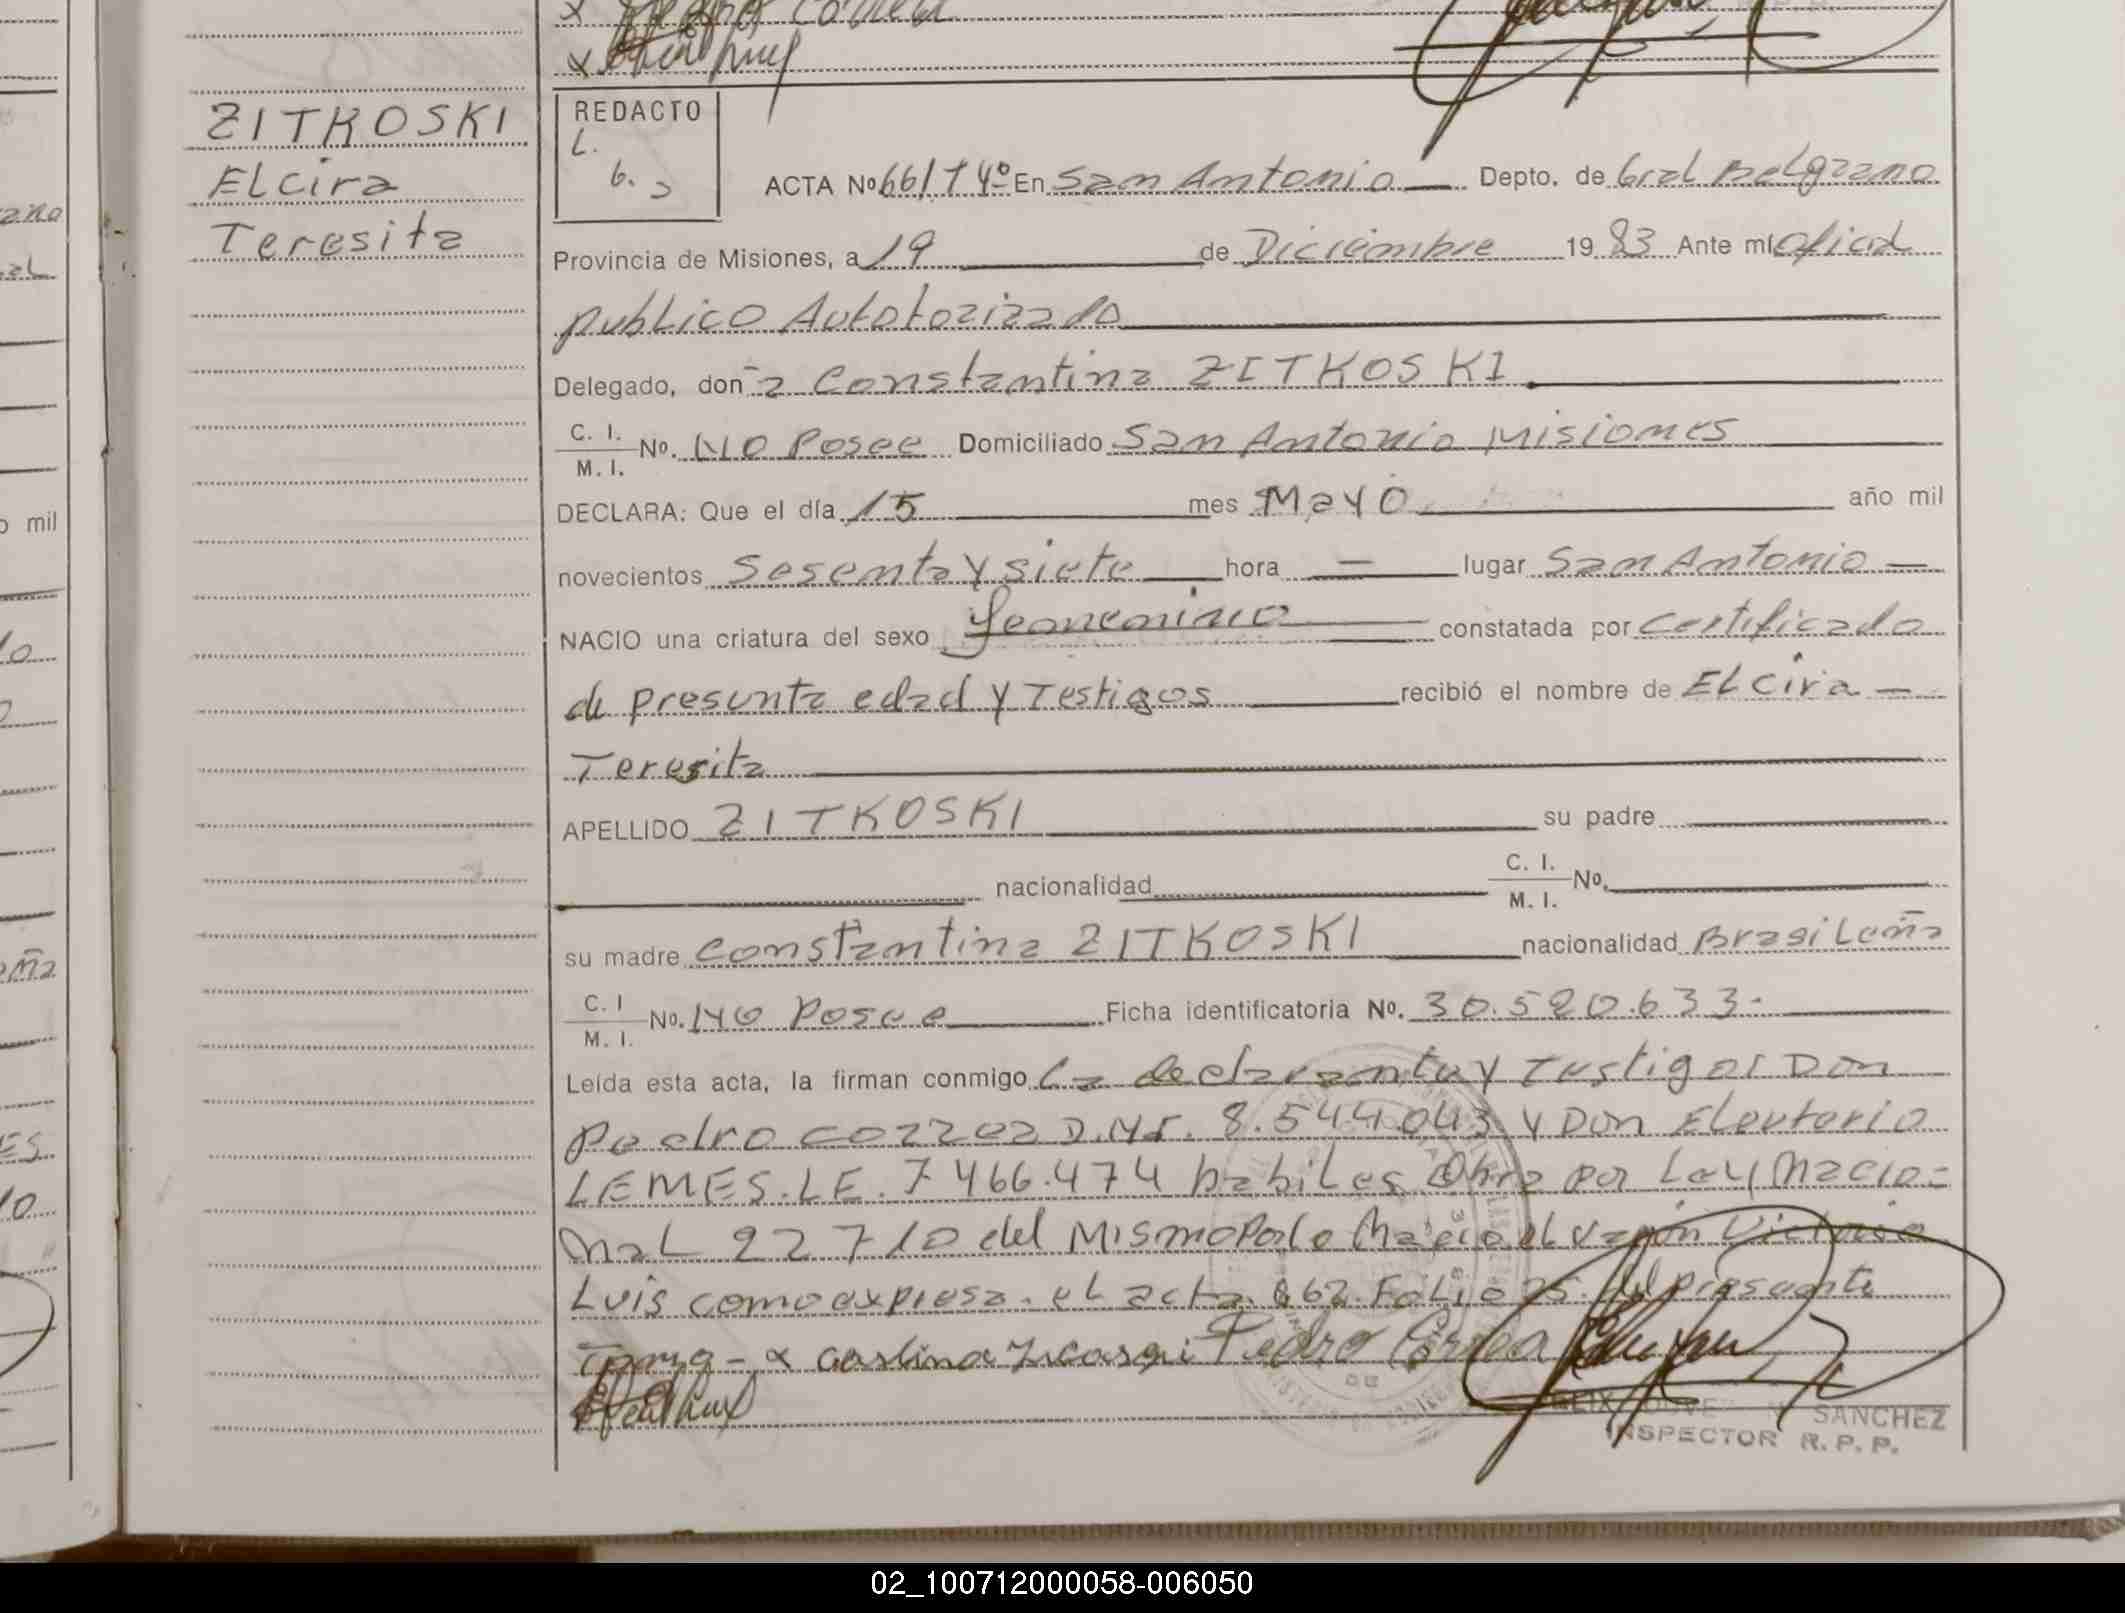 x Pedro Correa
ZITKOSKI
Elcira
Teresita
REDACTO
L.
6.
ACTA Nº 661 T 4º En San Antonio Depto. de Gral Belgrano
Provincia de Misiones, a 19 de Diciembre 1983 Ante mí Oficial
publico Autotorizado
Delegado, don a Constantina ZITKOSKI
C. I.
M. I. Nº. NO Posee Domiciliado San Antonio Misiones
DECLARA: Que el día 15 mes Mayo año mil
novecientos Sesenta y siete hora — lugar San Antonio —
NACIO una criatura del sexo femenino constatada por Certificado
de presunta edad y Testigos recibió el nombre de Elcira —
Teresita
APELLIDO ZITKOSKI su padre
nacionalidad C. I.
M. I. Nº.
su madre Constantina ZITKOSKI nacionalidad Brasileña
C. I
M. I. Nº. NO Posee Ficha identificatoria Nº. 30.580.633.
Leída esta acta, la firman conmigo La declaranta y Testigos Don
Pedro Correa D.N.I. 8.544.043 y Don Eleuterio
LEMES. L.E. 7.466.474 habiles Obra por Ley Nacio=
nal 22710 del Mismo Parto Nacio el varón Victorio
Luis como expresa el acta 662 Folio 75 del presente
Tomo - x Pedro Correa
SANCHEZ
INSPECTOR R. P. P.
02_100712000058-006050